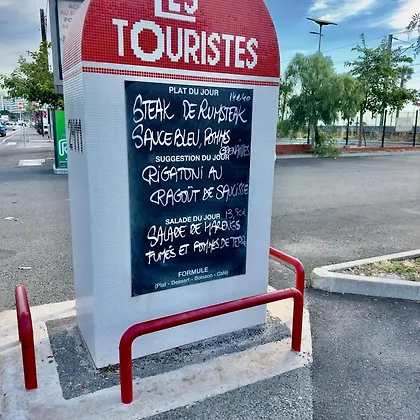 LES
TOURISTES
PLAT DU JOUR
14€40
STEAK DE RUMSTEAK
SAUCE BLEU, POMMES
GRENAILLES
SUGGESTION DU JOUR
RIGATONI AU
RAGOÛT DE SAUCISSE
SALADE DU JOUR
SALADE DE HARENGS
FUMÉS ET POMMES DE TERRE
FORMULE
(Plat - Dessert - Boisson - Café)